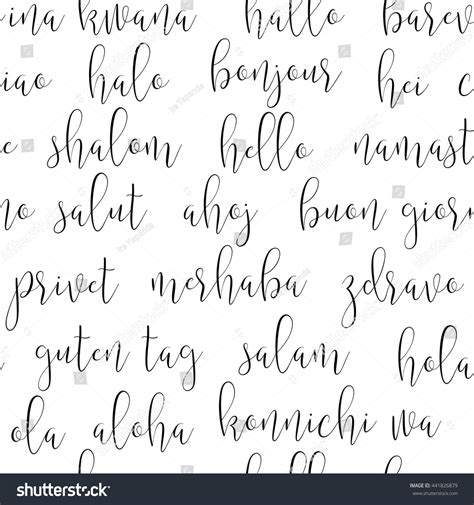 ina kwana hallo barev
iao halo bonjour hei c
e shalom hello namast
no salut ahoj buon giorn
privet merhaba zdravo
guten tag salam hola
ola aloha konnichi wa
shutterstock
www.shutterstock.com · 441826879